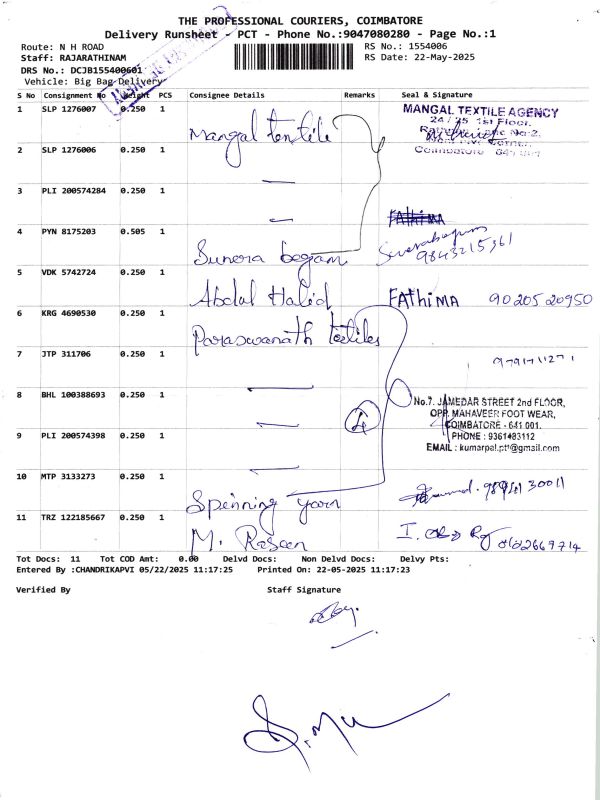 THE PROFESSIONAL COURIERS, COIMBATORE
Delivery Runsheet - PCT - Phone No.:9047080280 - Page No.:1
Route: N H ROAD
RS No.: 1554006
Staff: RAJARATHINAM
RS Date: 22-May-2025
DRS No.: DCJB155400601
Vehicle: Big Bag Delivery
S No Consignment No Weight PCS Consignee Details Remarks Seal & Signature
1 SLP 1276007 0.250 1 Mangal textile MANGAL TEXTILE AGENCY
24 / 25 1st Floor,
2 SLP 1276006 0.250 1 —
Coimbatore
3 PLI 200574284 0.250 1 —
FAthiMA
4 PYN 8175203 0.505 1 Sunera begam 9843215361
5 VDK 5742724 0.250 1 Abdul Halid FAthiMA 9020520950
6 KRG 4690530 0.250 1 Paraswanath textiles
7 JTP 311706 0.250 1 —
8 BHL 100388693 0.250 1 — 4
No.7. JAMEDAR STREET 2nd FLOOR,
OPP. MAHAVEER FOOT WEAR,
COIMBATORE - 641 001.
9 PLI 200574398 0.250 1 —
PHONE : 9361483112
10 MTP 3133273 0.250 1 Spinning yarn
11 TRZ 122185667 0.250 1 M. Raseen
Tot Docs: 11 Tot COD Amt: 0.00 Delvd Docs: Non Delvd Docs: Delvy Pts:
Entered By :CHANDRIKAPVI 05/22/2025 11:17:25 Printed On: 22-05-2025 11:17:23
Verified By Staff Signature